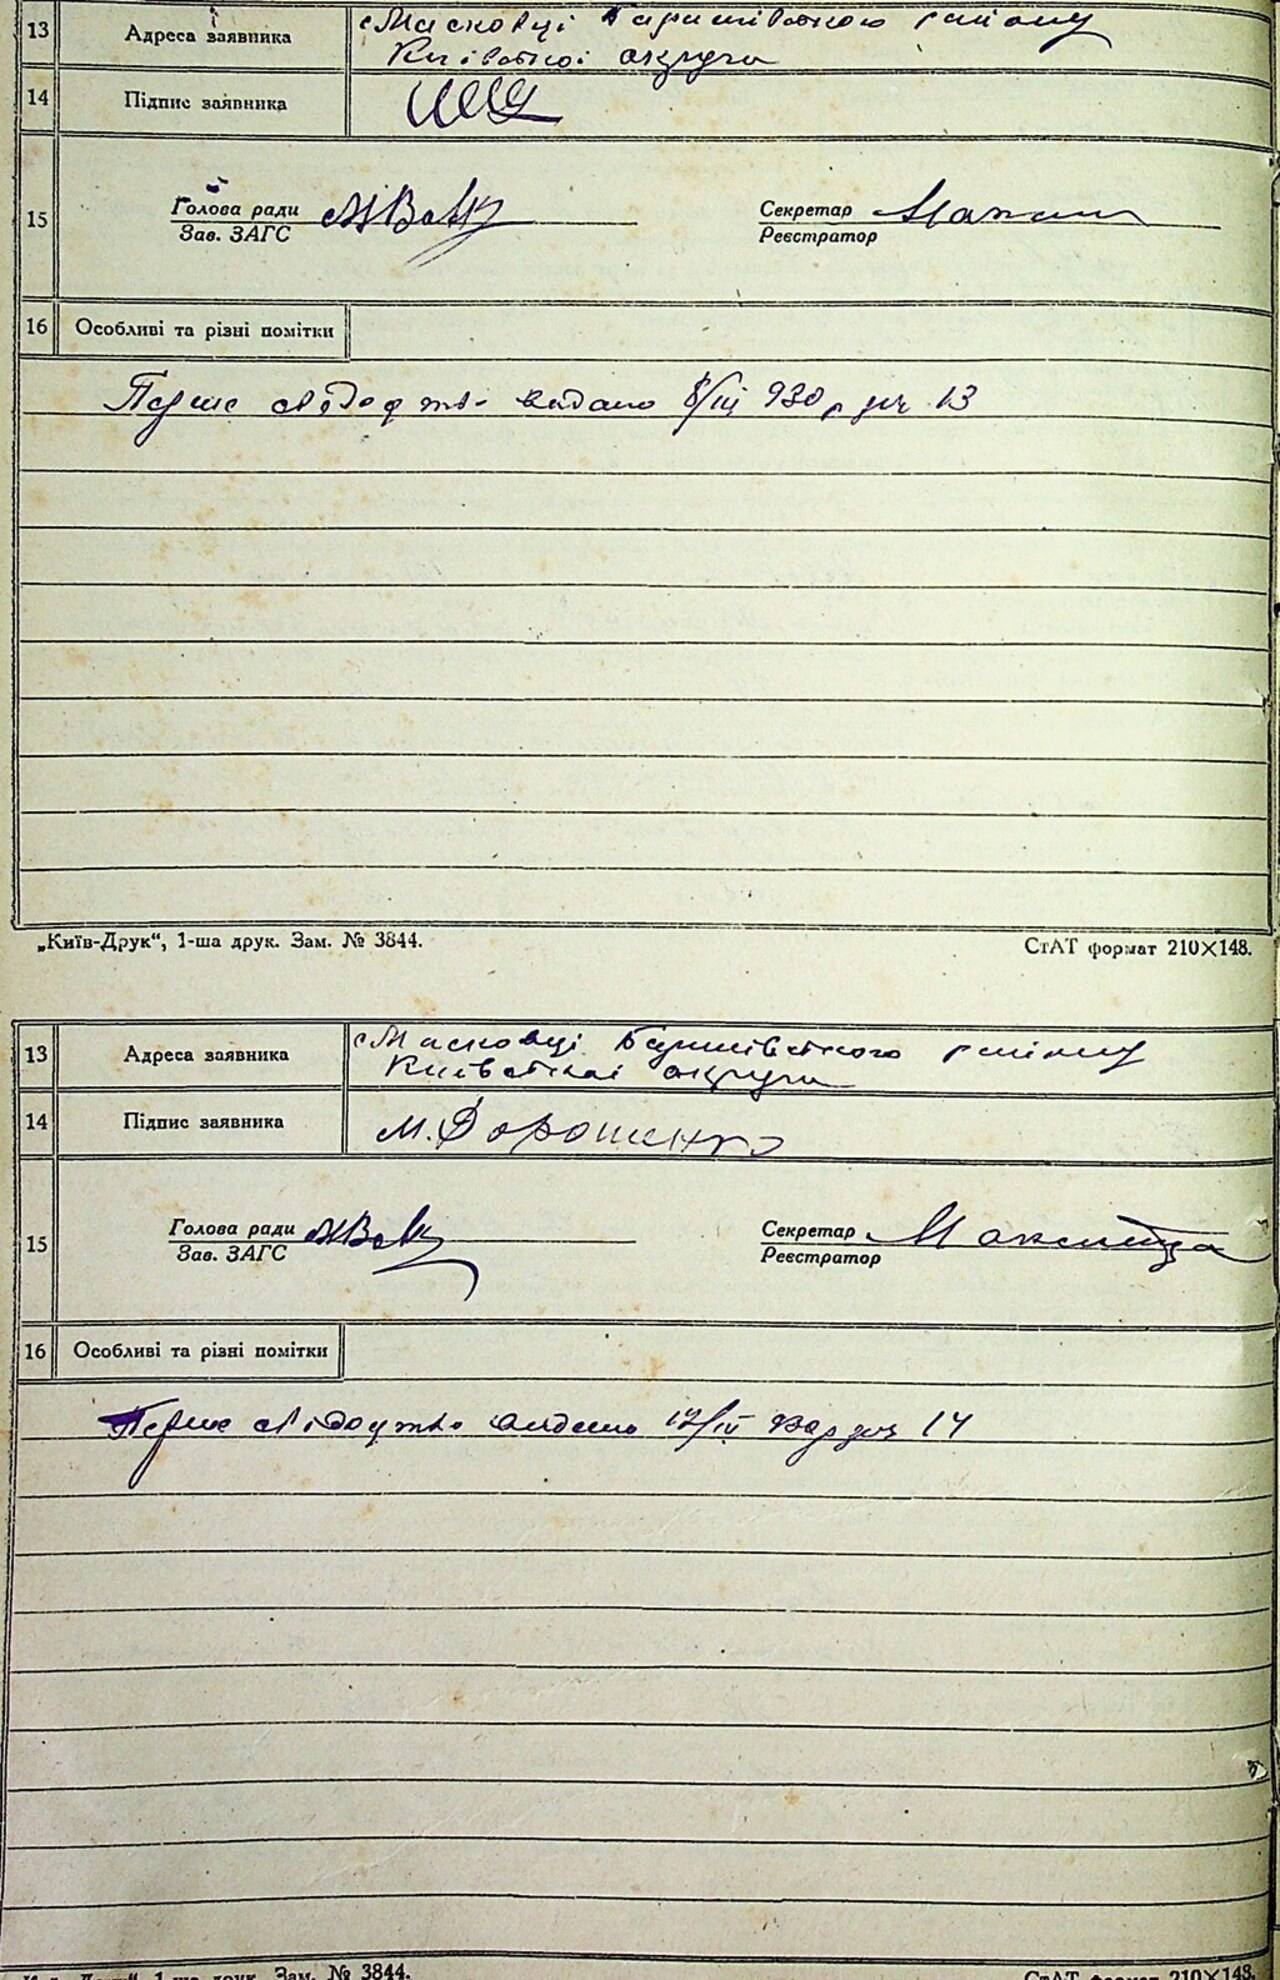 13 Адреса заявника с Масковці Баришівського району
Київської округи
14 Підпис заявника
15 Голова ради Секретар
Зав. ЗАГС Реєстратор
16 Особливі та різні помітки
Перше свідоцтво видано 8/III 930 р за 13
„Київ-Друк“, 1-ша друк. Зам. № 3844. СтАТ формат 210×148.
13 Адреса заявника с Масковці Баришівського району
Київської округи
14 Підпис заявника М. Дорошенко
15 Голова ради Секретар
Зав. ЗАГС Реєстратор
16 Особливі та різні помітки
Перше свідоцтво видано 12/IV 14
1-ша друк. Зам. № 3844. СтАТ формат 210×148.